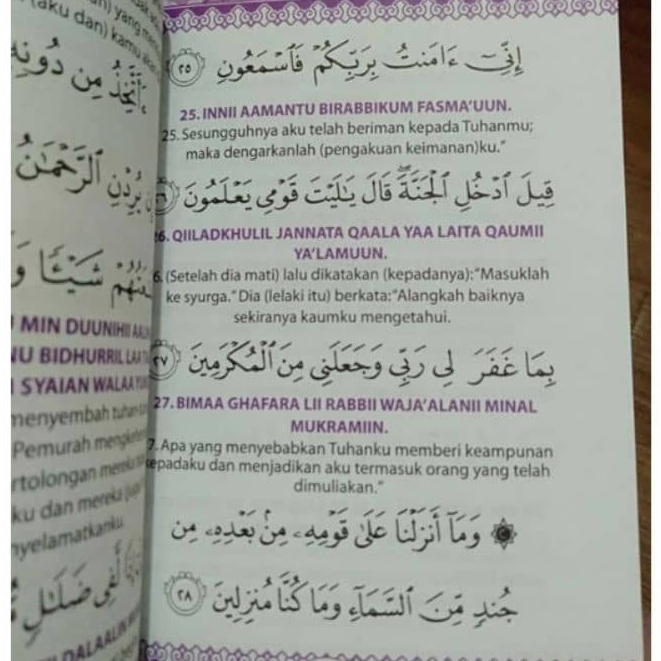 إِنِّىٓ ءَامَنتُ بِرَبِّكُمْ فَٱسْمَعُونِ ٢٥
25. INNII AAMANTU BIRABBIKUM FASMA'UUN.
25. Sesungguhnya aku telah beriman kepada Tuhanmu;
maka dengarkanlah (pengakuan keimanan)ku."
قِيلَ ٱدْخُلِ ٱلْجَنَّةَ ۖ قَالَ يَـٰلَيْتَ قَوْمِى يَعْلَمُونَ
26. QIILADKHULIL JANNATA QAALA YAA LAITA QAUMII
YA'LAMUUN.
6. (Setelah dia mati) lalu dikatakan (kepadanya):"Masuklah
ke syurga." Dia (lelaki itu) berkata:"Alangkah baiknya
sekiranya kaumku mengetahui.
بِمَا غَفَرَ لِى رَبِّى وَجَعَلَنِى مِنَ ٱلْمُكْرَمِينَ ٢٧
27. BIMAA GHAFARA LII RABBII WAJA'ALANII MINAL
MUKRAMIIN.
7. Apa yang menyebabkan Tuhanku memberi keampunan
kepadaku dan menjadikan aku termasuk orang yang telah
dimuliakan."
وَمَآ أَنزَلْنَا عَلَىٰ قَوْمِهِۦ مِنۢ بَعْدِهِۦ مِن
جُندٍ مِّنَ ٱلسَّمَآءِ وَمَا كُنَّا مُنزِلِينَ ٢٨
(aku dan) kamu
مِن دُونِهِ
يُرِدْنِ ٱلرَّحْمَـٰنُ
شَيْـًٔا وَ
MIN DUUNIHII
BIDHURRIL
SYAIAN WALAA
menyembah
Pemurah
mereka
ku dan mereka
nyelamatkanku.
لَّفِى ضَلَـٰلٍ